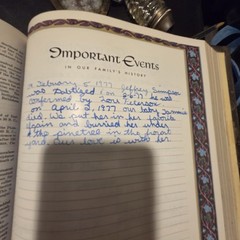 Important Events
IN OUR FAMILY'S HISTORY
February 5, 1977 Jeffrey Simpson
was Baptized
confermed by
on April 3, 1977 our baby Tammie
died. We put her in her favorite
and burried her under
the pinetree in the front
yard. Our love is with her.